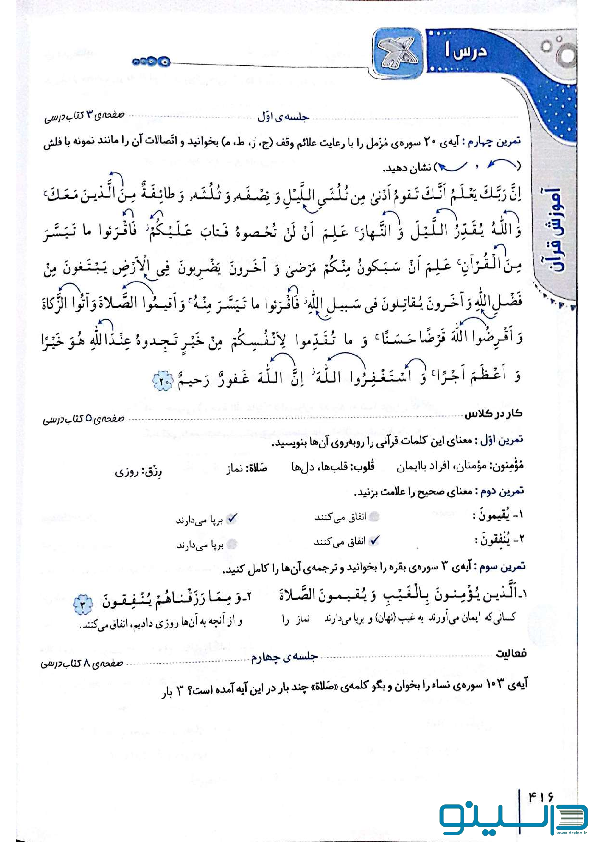 درس ۱
آموزش قرآن
جلسه‌ی اوّل
صفحه‌ی ۳ کتاب درسی
تمرین چهارم : آیه‌ی ۲۰ سوره‌ی مُزمل را با رعایت علائم وقف (ج، ز، ط، م) بخوانید و اتّصالات آن را مانند نمونه با فلش
( ، ) نشان دهید.
اِنَّ رَبَّكَ يَعْلَمُ اَنَّكَ تَقومُ اَدْنىٰ مِن ثُلُثَیِ الَّيْلِ وَ نِصْفَه وَ ثُلُثَه وَ طائِفَةٌ مِنَ الَّذينَ مَعَكَ ۚ
وَ اللّٰهُ يُقَدِّرُ الَّيْلَ وَ النَّهارَ ۚ عَلِمَ اَنْ لَنْ تُحْصوهُ فَتابَ عَلَيْكُمْ ۖ فَاقْرَءوا ما تَيَسَّرَ
مِنَ الْقُرْآنِ ۚ عَلِمَ اَنْ سَيَكونُ مِنْكُمْ مَرْضىٰ وَ آخَرونَ يَضْرِبونَ فِى الْاَرْضِ يَبْتَغونَ مِنْ
فَضْلِ اللّٰهِ وَ آخَرونَ يُقاتِلونَ فى سَبيلِ اللّٰهِ ۖ فَاقْرَءوا ما تَيَسَّرَ مِنْهُ ۚ وَ اَقيمُوا الصَّلاةَ وَ آتُوا الزَّكاةَ
وَ اَقْرِضُوا اللّٰهَ قَرْضًا حَسَنًا ۚ وَ ما تُقَدِّموا لِاَنْفُسِكُمْ مِنْ خَيْرٍ تَجِدوهُ عِنْدَ اللّٰهِ هُوَ خَيْرًا
وَ اَعْظَمَ اَجْرًا ۚ وَ اسْتَغْفِرُوا اللّٰهَ ۖ اِنَّ اللّٰهَ غَفورٌ رَحيمٌ ۲۰
کار در کلاس
صفحه‌ی ۵ کتاب درسی
تمرین اوّل : معنای این کلمات قرآنی را روبه‌روی آن‌ها بنویسید.
مُؤْمِنون: مؤمنان، افراد باایمان قُلوب: قلب‌ها، دل‌ها صَلاة: نماز رِزْق: روزی
تمرین دوم : معنای صحیح را علامت بزنید.
۱- یُقیمونَ : اتفاق می‌کنند ✓ برپا می‌دارند
۲- یُنْفِقونَ : ✓ انفاق می‌کنند برپا می‌دارند
تمرین سوم : آیه‌ی ۳ سوره‌ی بقره را بخوانید و ترجمه‌ی آن‌ها را کامل کنید.
۱- اَلَّذينَ يُؤْمِنونَ بِالْغَيْبِ وَ يُقيمونَ الصَّلاةَ ۲- وَ مِمّا رَزَقْناهُمْ يُنْفِقونَ ۳
کسانی که ایمان می‌آورند به غیب (نهان) و برپا می‌دارند نماز را و از آنچه به آن‌ها روزی دادیم، انفاق می‌کنند.
فعالیت
جلسه‌ی چهارم
صفحه‌ی ۸ کتاب درسی
آیه‌ی ۱۰۳ سوره‌ی نساء را بخوان و بگو کلمه‌ی «صَلاة» چند بار در این آیه آمده است؟ ۳ بار
۴۱۶
درسینو